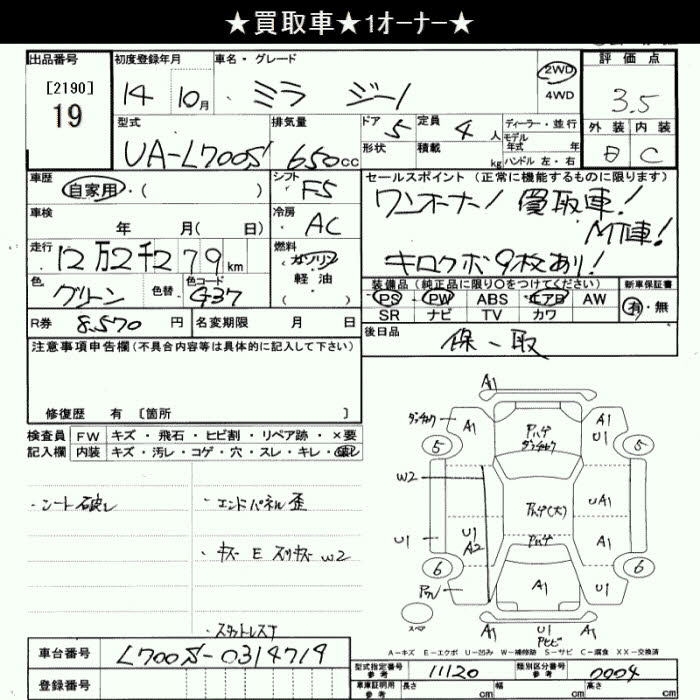 ★買取車★1ｵｰﾅｰ★
出品番号 初度登録年月 車名・グレード 評価点
[2190]
19
14 10月 ミラ ジーノ 2WD
4WD
3.5
型式 排気量 ドア 定員 ディーラー・並行
UA-L700S 650cc 5 4人 モデル年式 年式
形状 積載 kg ハンドル 左・右
外装 内装
B C
車歴 シフト セールスポイント (正常に機能するものに限ります)
自家用・( ) F5 ワンオーナー! 買取車!
車検 冷房 MT車!
年 月( 日) AC キロクボ9枚あり!
走行 燃料
12万2千279km ガソリン
軽油
( )
色 色替 色コード
グリーン G37
装備品 (純正品に限り○をつけてください) 新車保証書
PS PW ABS エアB AW 有・無
SR ナビ TV カワ
R券 8,570円 名変期限 月 日
後日品 保、取
注意事項申告欄 (不具合内容等は具体的に記入して下さい)
修復歴 有 〔箇所 〕
検査員 FW キズ・飛石・ヒビ割・リペア跡・×要
記入欄 内装 キズ・汚レ・コゲ・穴・スレ・キレ・破レ
・シート破レ ・エンドパネル歪
・キズ E スリキズ W2
・スタットレス7
A1
A1 A1
U1
5 5
W2
UA1
U1 U1
A2 A1
6 6
A1 U1
スペア
A1 U1 A1
A=キズ E=エクボ U=凹み W=補修跡 S=サビ C=腐食 XX=交換済
車台番号 L700S-0314719
登録番号
型式指定番号 参考 11120 類別区分番号 参考 0004
車庫証明用 参考 長さ cm 幅 cm 高さ cm